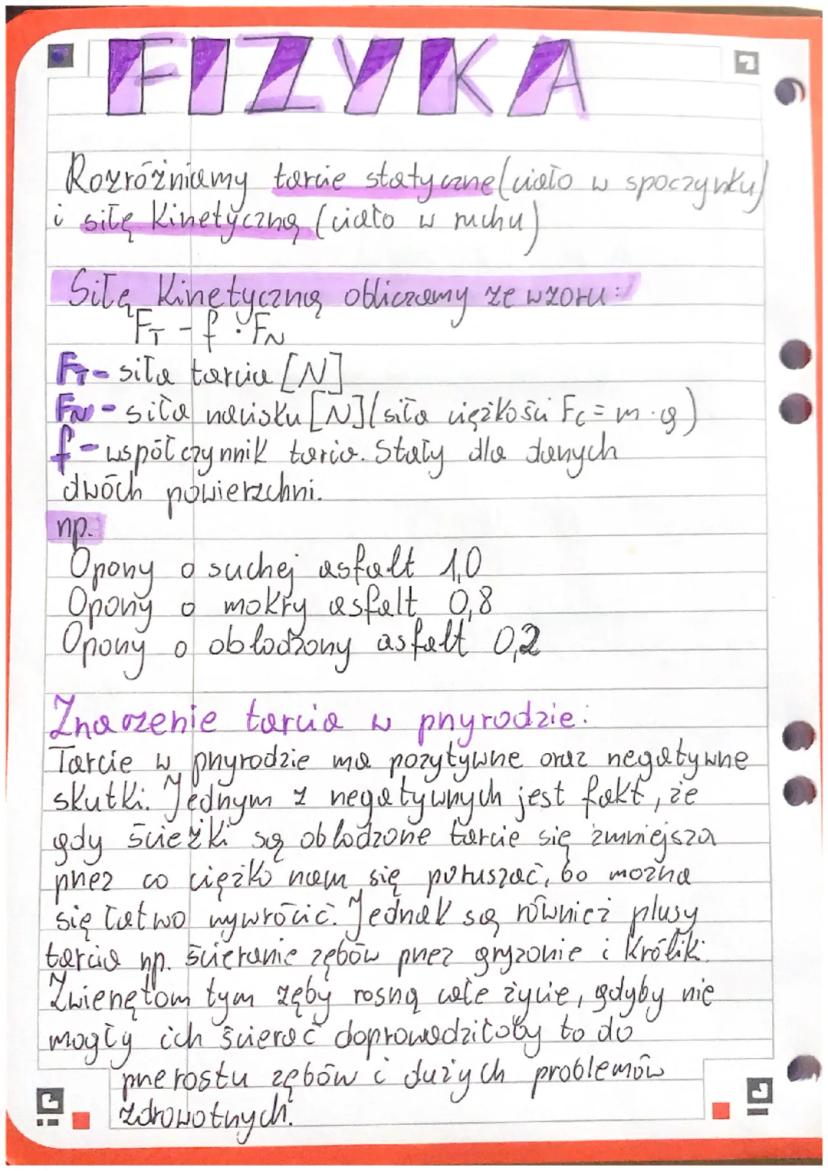 FIZYKA
Rozróżniamy tarcie statyczne (ciało w spoczynku)
i siłę kinetyczną (ciało w ruchu)
Siłę kinetyczną obliczamy ze wzoru:
F_T - f · F_N
F_T - siła tarcia [N]
F_N - siła nacisku [N] (siła ciężkości Fc = m · g)
f - współczynnik tarcia. Stały dla danych
dwóch powierzchni.
np.
Opony o suchej asfalt 1,0
Opony o mokry asfalt 0,8
Opony o oblodzony asfalt 0,2
Znaczenie tarcia w przyrodzie:
Tarcie w przyrodzie ma pozytywne oraz negatywne
skutki. Jednym z negatywnych jest fakt, że
gdy ścieżki są oblodzone tarcie się zmniejsza
przez co ciężko nam się poruszać, bo można
się łatwo wywrócić. Jednak są również plusy
tarcia np. ścieranie zębów przez gryzonie i króliki.
Zwierzętom tym zęby rosną całe życie, gdyby nie
mogły ich ścierać doprowadziłoby to do
przerostu zębów i dużych problemów
zdrowotnych.